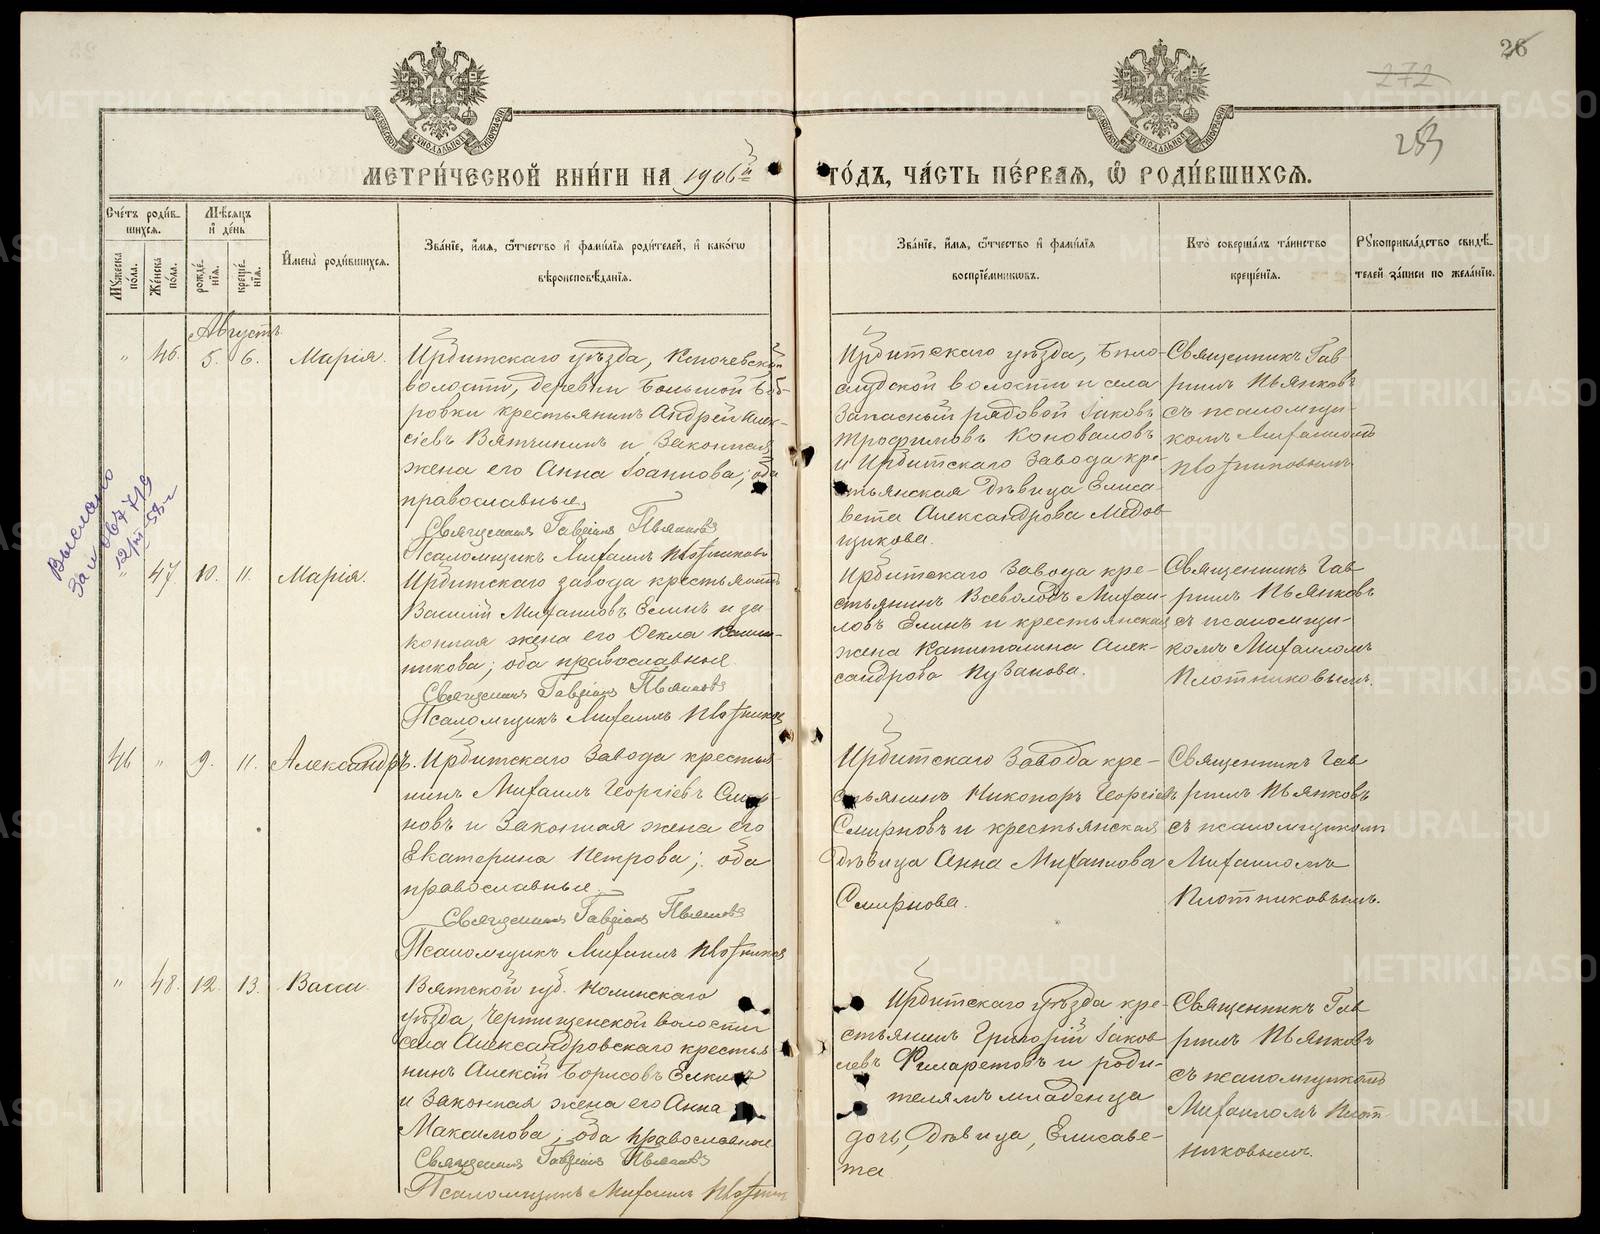 26
272
253
МЕТРИ́ЧЕСКОЙ КНИ́ГИ НА 1906й
ГО́ДЪ, ЧА́СТЬ ПЕ́РВАЯ, Ѽ РОДИ́ВШИХСЯ.
Сче́тъ роди́в-
шихся.
Мѣ́сяцъ
и҆ де́нь
Му́жеска по́ла.
Же́нска по́ла.
рожде́-
нїя.
креще́-
нїя.
И҆мена̀ роди́вшихся.
Зва́нїе, и҆́мя, ѻ҆́тчество и҆ фами́лїя роди́телей, и҆ како́гѡ
вѣроисповѣ́данїя.
Зва́нїе, и҆́мя, ѻ҆́тчество и҆ фами́лїя
воспрїе́мникѡвъ.
Кто̀ соверша́лъ та́инство
креще́нїя.
Рꙋкоприкла́дство свидѣ́-
телей за́писи по жела́нїю.
Августъ
„ 46. 5. 6. Марія.
Ирбитскаго уѣзда, Ключевской
волости, деревни Большой Боб-
ровки крестьянинъ Андрей Алек-
сіевъ Вятчининъ и законная
жена его Анна Іоаннова; оба
православные
Священникъ Гавріилъ Пьянковъ
Псаломщикъ Михаилъ Плотниковъ
Ирбитскаго уѣзда, Бѣло-
слудской волости и села
запасный рядовой Іаковъ
Трофимовъ Коноваловъ
и Ирбитскаго завода кре-
стьянская дѣвица Елиса-
вета Александрова Медов-
щикова.
Священникъ Гав-
ріилъ Пьянковъ
съ псаломщи-
комъ Михаиломъ
Плотниковымъ
Выслано
„ 47. 10. 11. Марія.
Ирбитскаго завода крестьянинъ
Василій Михаиловъ Елинъ и за
конная жена его Ѳекла
никова; оба православные
Священникъ Гавріилъ Пьянковъ
Псаломщикъ Михаилъ Плотниковъ
Ирбитскаго завода кре-
стьянинъ Всеволодъ Михаи-
ловъ Елинъ и крестьянская
жена Капиталина Алек-
сандрова Пузанова.
Священникъ Гав
ріилъ Пьянковъ
съ псаломщи-
комъ Михаиломъ
Плотниковымъ.
46 „ 9. 11. Александръ.
Ирбитскаго завода крестья-
нинъ Михаилъ Георгіевъ Смир-
новъ и законная жена его
Екатерина Петрова; оба
православные.
Священникъ Гавріилъ Пьянковъ
Псаломщикъ Михаилъ Плотниковъ
Ирбитскаго завода кре-
стьянинъ Никопоръ Георгіевъ
Смирновъ и крестьянская
дѣвица Анна Михаилова
Смирнова.
Священникъ Гав
ріилъ Пьянковъ
съ псаломщикомъ
Михаиломъ
Плотниковымъ.
„ 48. 12. 13. Васса.
Вятской губ. Нолинскаго
уѣзда, Чертищенской волости
села Александровскаго крестья-
нинъ Алексій Борисовъ Елкинъ
и законная жена его Анна
Максимова; оба православные
Священникъ Гавріилъ Пьянковъ
Псаломщикъ Михаилъ Плотник
Ирбитскаго уѣзда кре-
стьянинъ Григорій Іаков
левъ Филаретовъ и роди-
телямъ младенца
дочь, дѣвица, Елисаве-
та
Священникъ Гав
ріилъ Пьянковъ
съ псаломщикомъ
Михаиломъ Плот-
никовымъ.